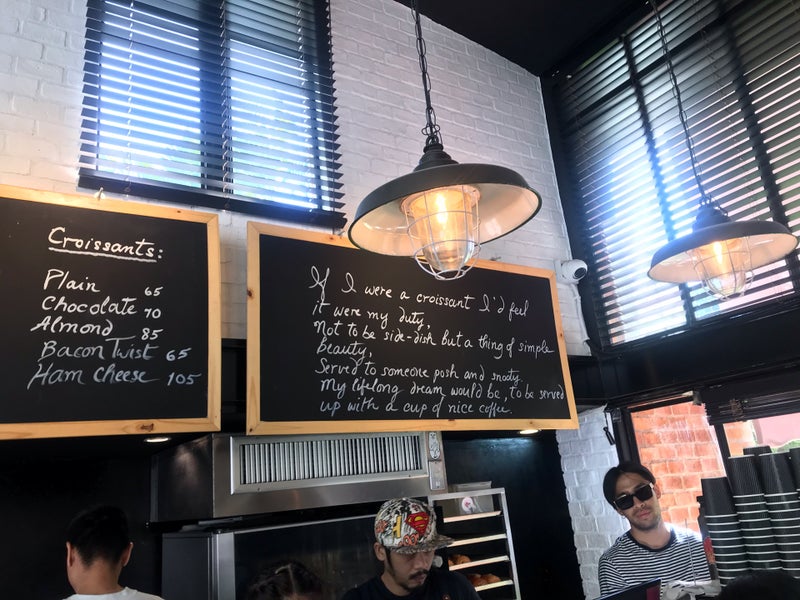 Croissants:
Plain 65
Chocolate 70
Almond 85
Bacon Twist 65
Ham Cheese 105
If I were a croissant I'd feel
it were my duty,
Not to be side-dish but a thing of simple
Beauty,
Served to someone posh and snooty
My lifelong dream would be, to be served
up with a cup of nice coffee.